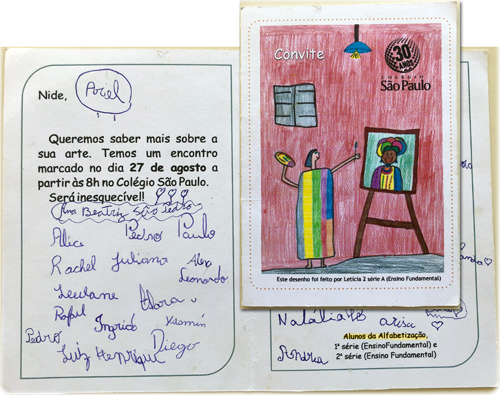 Nide,
Ariel
Queremos saber mais sobre a
sua arte. Temos um encontro
marcado no dia 27 de agosto a
partir às 8h no Colégio São Paulo.
Será inesquecível!
Ana Beatriz São Pedro
Alice Pedro Paulo
Rachel Juliana Alex
Leonardo
Rafael Ingrid Yasmin
Pedro
Luiz Henriqu Diego
Convite
30 ANOS
COLÉGIO
São Paulo
Este desenho foi feito por Letícia 2 série A (Ensino Fundamental)
Andria
Alunos da Alfabetização,
1ª série (EnsinoFundamental) e
2ª série (Ensino Fundamental)